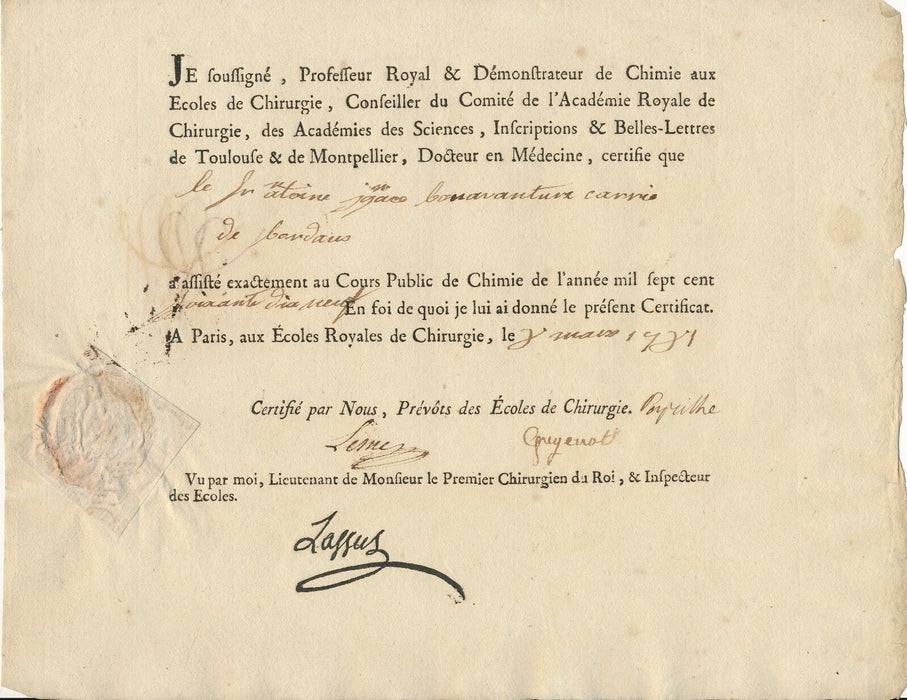 JE souſſigné, Profeſſeur Royal & Démonſtrateur de Chimie aux
Ecoles de Chirurgie, Conſeiller du Comité de l'Académie Royale de
Chirurgie, des Académies des Sciences, Inſcriptions & Belles-Lettres
de Toulouſe & de Montpellier, Docteur en Médecine, certifie que
le Sr antoine ignace bonavanture carrie
de bordaus
a aſſiſté exactement au Cours Public de Chimie de l'année mil ſept cent
soixante dix neuf En foi de quoi je lui ai donné le préſent Certificat.
A Paris, aux Écoles Royales de Chirurgie, le mars
Certifié par Nous, Prévôts des Écoles de Chirurgie. Peyrilhe
Vu par moi, Lieutenant de Monſieur le Premier Chirurgien du Roi, & Inſpecteur
des Ecoles.
Lassus